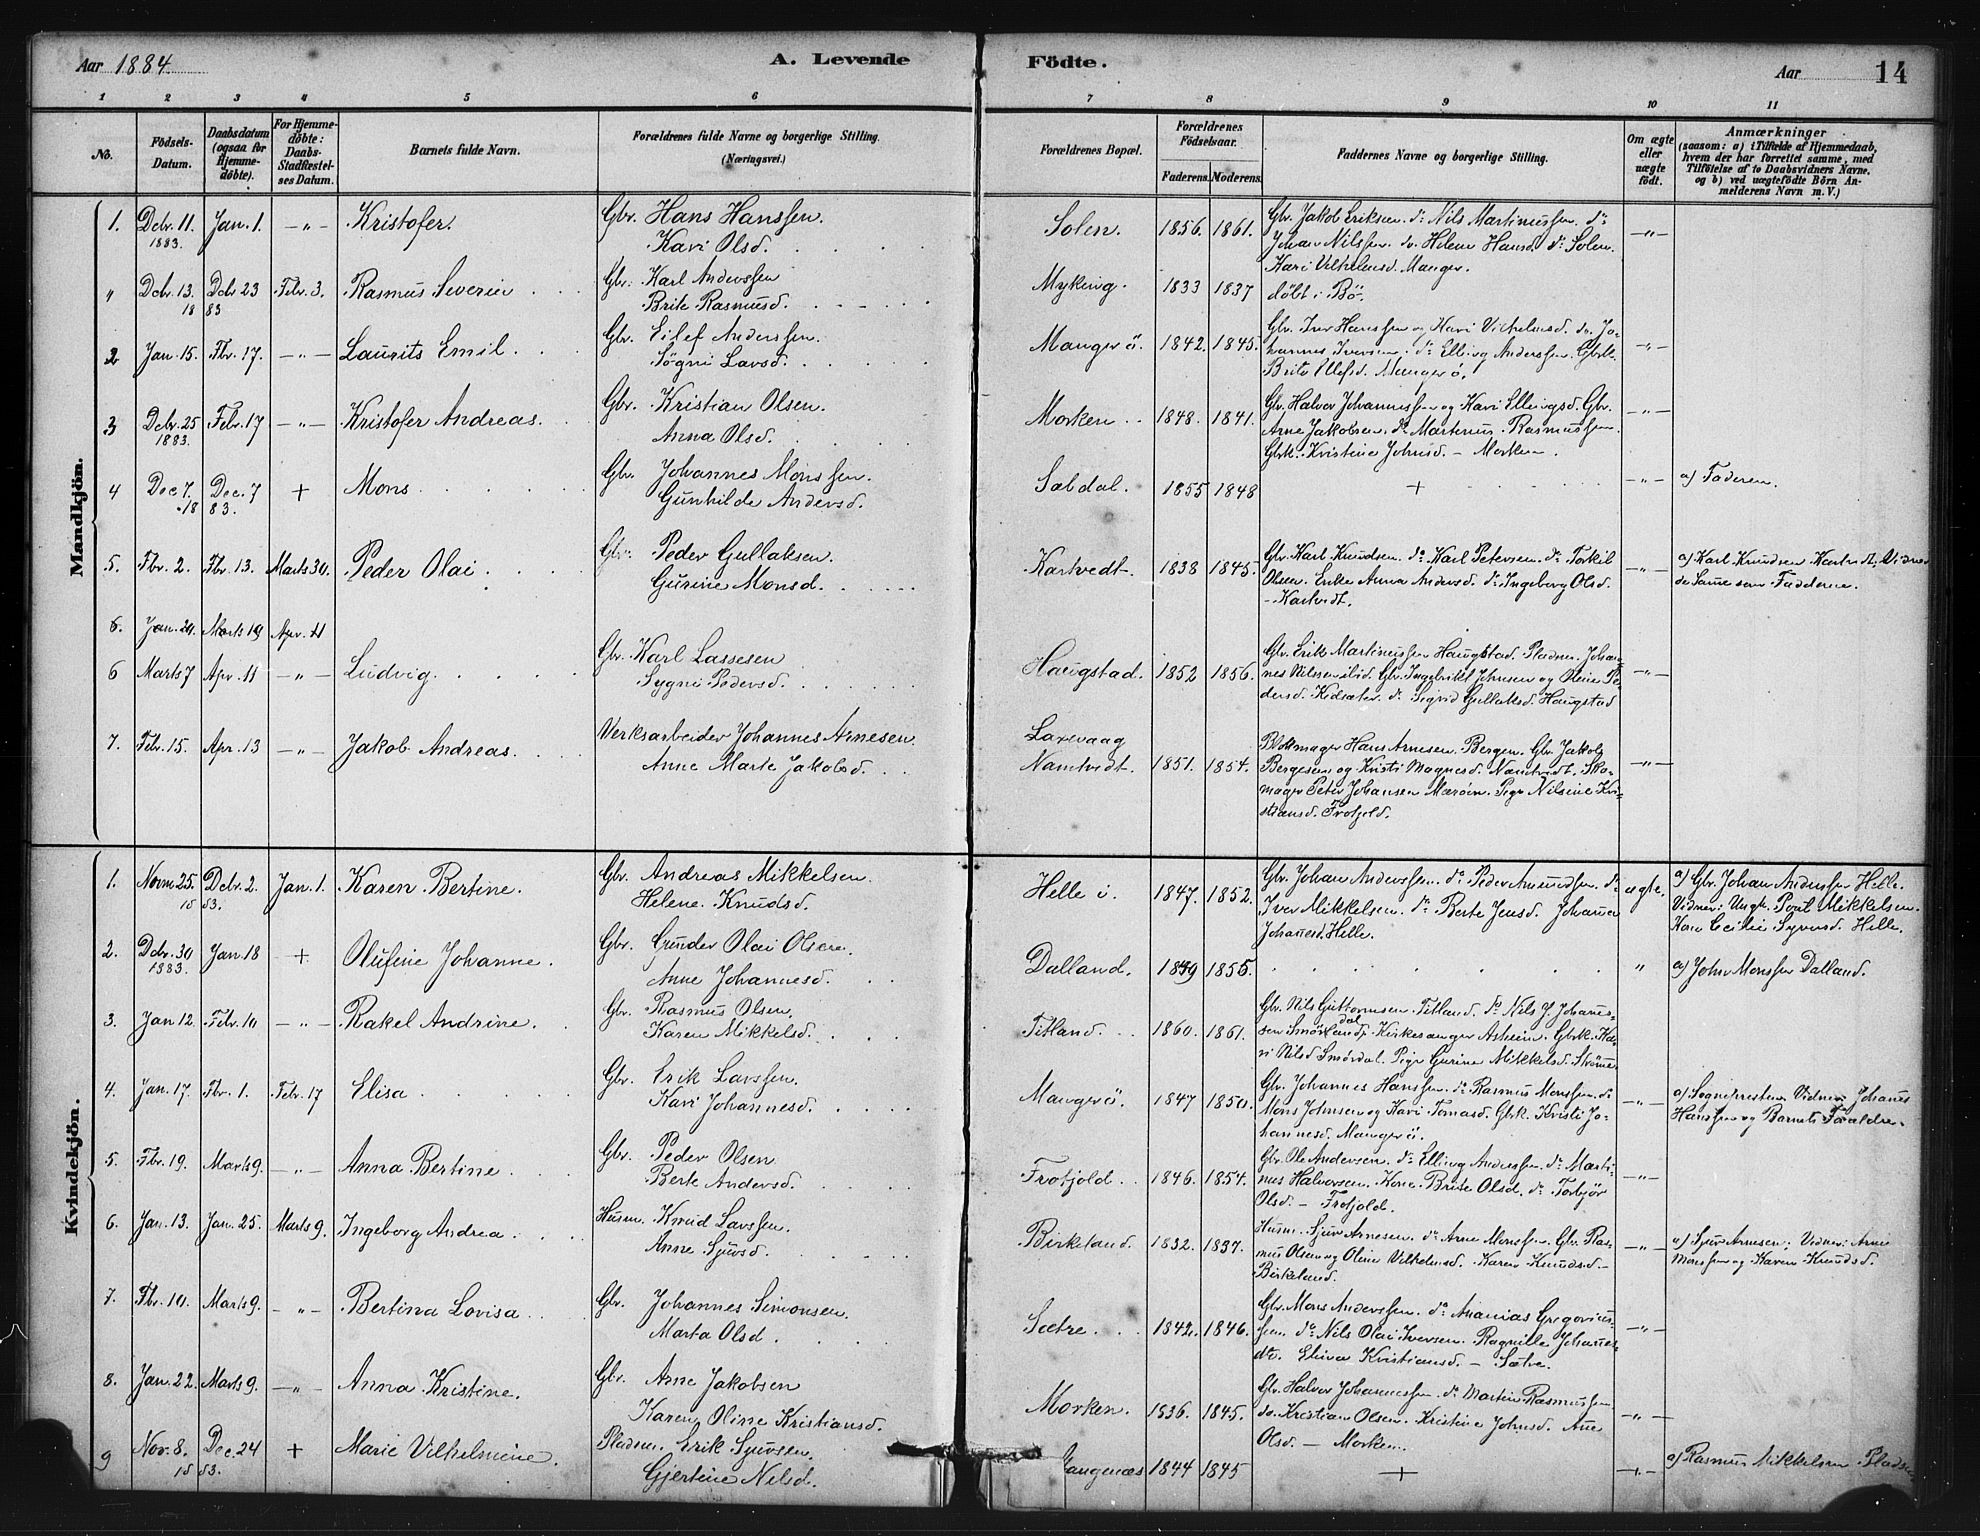 Aar 1884. A. Levende Födte. Aar 14
1 2 3 4 5 6 7 8 9 10 11
No.
Födsels-Datum.
Daabsdatum (ogsaa for Hjemme-döbte).
For Hjemme-döbte: Daabs-Stadfæstel-ses Datum.
Barnets fulde Navn.
Forældrenes fulde Navne og borgerlige Stilling. (Næringsvei.)
Forældrenes Bopæl.
Forældrenes Födselsaar.
Faderens. Moderens.
Faddernes Navne og borgerlige Stilling.
Om ægte eller uægte födt.
Anmærkninger (saasom: a) i Tilfælde af Hjemmedaab, hvem der har forrettet samme, med Tilföielse af to Daabsvidners Navne, og b) ved uægtefödte Börn An-melderens Navn m. V.)
Mandkjön.
1. Decbr. 11. 1883. Jan. 1. -„- Kristofer. Gbr. Hans Hanssen. Kari Olsd. Solem. 1856. 1861. Gbr. Jakob Eriksen. do Nils Martinussen. do
Johan Nilssen. do. Helene Hansd. do Solem.
Kari Vilhelmsd. Manger. -„-
„ Decbr. 13. 1883 Decbr 23 Febr. 3. Rasmus Severin Gbr. Karl Anderssen Brite Rasmusd. Myking. 1833 1837 döbt i Bö.
2 Jan. 15. Fbr. 17. -„- Laurits Emil. Gbr. Eilef Anderssen. Sögni Larsd. Mangerö. 1842. 1845. Gbr. Iver Hanssen og Kari Vilhelmsd. do. Jo-
hannes Iversen. do Elling Anderssen. Gbrk.
Brite Ellefsd. Mangerö. -„-
3 Decbr. 25 1883. Febr. 17 -„- Kristofer Andreas. Gbr. Kristian Olsen. Anna Olsd. Morken 1848. 1841. Gbr. Halvor Johannessen og Kari Ellingsd. Gbr.
Arne Jakobsen. do Martinus Rasmussen.
Gbrk. Kristine Johnsd. - Morken. -„-
4 Dec 7. 1883. Dec. 7 + Mons Gbr. Johannes Monssen. Gunhilde Andersd. Sæbdal. 1855 1848 + -„- a) Faderen.
5. Fbr. 2. Fbr. 13. Marts 30. Peder Olai Gbr. Peder Gullaksen. Gurine Monsd. Kartvedt. 1838 1845. Gbr. Karl Knudsen. do Karl Petersen. do Torkil
Olsen. Enke Anna Andersd. do. Ingeborg Olsd.
- Kartvedt. -„- a) Karl Knudsen Kartvedt, Vidner
de Samme som Fadderne.
6. Jan. 24. Marts 19 Apr. 11
6 Marts 7 Apr. 11 -„- Ludvig. Gbr. Karl Lassesen Sygni Pedersd. Haugstad. 1852 1856. Gbr. Erik Martinussen Haugstad. Pladsm. Johan-
nes Nilssen ibid. Gbr. Ingebrikt Johnsen og Oline Pe-
dersd. Kidsæter. do Sigrid Gullaksd. Haugstad -„-
7. Febr. 15. Apr. 13 -„- Jakob Andreas. Verksarbeider Johannes Arnesen. Anne Marte Jakobsd. Laxevaag Namtvedt. 1851. 1854. Blokmager Hans Arnesen. Bergen. Gbr. Jakob
Bergesen og Kristi Magnesd. Namtvedt. Sko-
mager Peter Johansen Mæröen. Pige Nilsine Kri-
stiansd. Frotjold. -„-
Kvindekjön.
1. Novm 25. 1883. Decbr. 2. Jan. 1. Karen Bertine. Gbr. Andreas Mikkelsen. Helene Knudsd. Helle i. 1847. 1852. Gbr. Johan Anderssen. do Peder Amundsen. do
Iver Mikkelsen. do Berte Jensd. Johanna
Johannesd. Helle. ægte. a) Gbr. Johan Anderssen Helle.
Vidner: Ungk. Poul Mikkelsen.
Kone Cecilie Syversd. Helle.
2. Decbr. 30 1883. Jan. 18 + Olufine Johanne. Gbr. Gunder Olai Olsen. Anne Johannesd. Dalland. 1849 1855. „ a) John Monssen Dalland.
3. Jan 12. Febr. 10 -„- Rakel Andrine. Gbr. Rasmus Olsen. Karen Mikkelsd. Titland. 1860. 1861. Gbr. Nils Guttormsen Titland. do Nils J. Johannes-
sen Smördal. Kirkesanger Asheim. Gbrk. Ka-
ri Nilsd Smördal. Pige Gurine Mikkelsd. Strömme
4. Jan. 17. Fbr. 1. Febr. 17 Elisa Gbr. Erik Larssen. Kari Johannesd. Mangerö. 1847 1850. Gbr. Johannes Hanssen. do Rasmus Monssen. do
Mons Johnsen og Kari Tomasd. Gbrk. Kristi Jo-
hannesd. Mangerö. -„- a) Sognepresten. Vidner: Johannes
Hanssen og Barnets Forældre.
5. Fbr. 19. Marts 9. -„- Anna Bertine Gbr. Peder Olsen Berte Andersd. Frotjold. 1846. 1854. Gbr. Ole Andersen. do Elling Anderssen. do Marti-
nus Halvorsen. Kone Brite Olsd. do Torbjör
Olsd. - Frotjold. -„-
6. Jan. 13. Jan. 25. Marts 9. Ingeborg Andrea. Husm. Knud Larssen. Anne Sjursd. Birkeland. 1832. 1837. Husm. Sjur Arnesen. do Arne Monssen. Gbr. Ras-
mus Olsen og Oline Vilhelmsd. Karen Knudsd. -
Birkeland. -„- a) Sjur Arnesen; Vidner: Arne
Monssen og Karen Knudsd.
7. Fbr. 10. Marts 9. -„- Bertina Lovisa. Gbr. Johannes Simonsen. Marta Olsd. Sætre. 1842. 1846. Gbr. Mons Anderssen. do Ananias Gregorius-
sen. do Nils Olai Iversen. Ragnille Johannes-
dtr. Elina Kristiansd. - Sætre. -„-
8. Jan. 22. Marts 9. -„- Anna Kristine. Gbr. Arne Jakobsen Karen Oline Kristiansd. Morken. 1836. 1845. Gbr. Halvor Johannessen. do Martin Rasmussen
do. Kristian Olsen. Kristine Johnsd. Ane
Olsd. - Morken. -„-
9 Nov. 8. 1883. Dec. 24 + Marie Vilhelmine. Pladsm. Erik Sjursen. Gjertine Nilsd. Langenæs 1844 1845 + -+- a) Rasmus Mikkelsen Plads